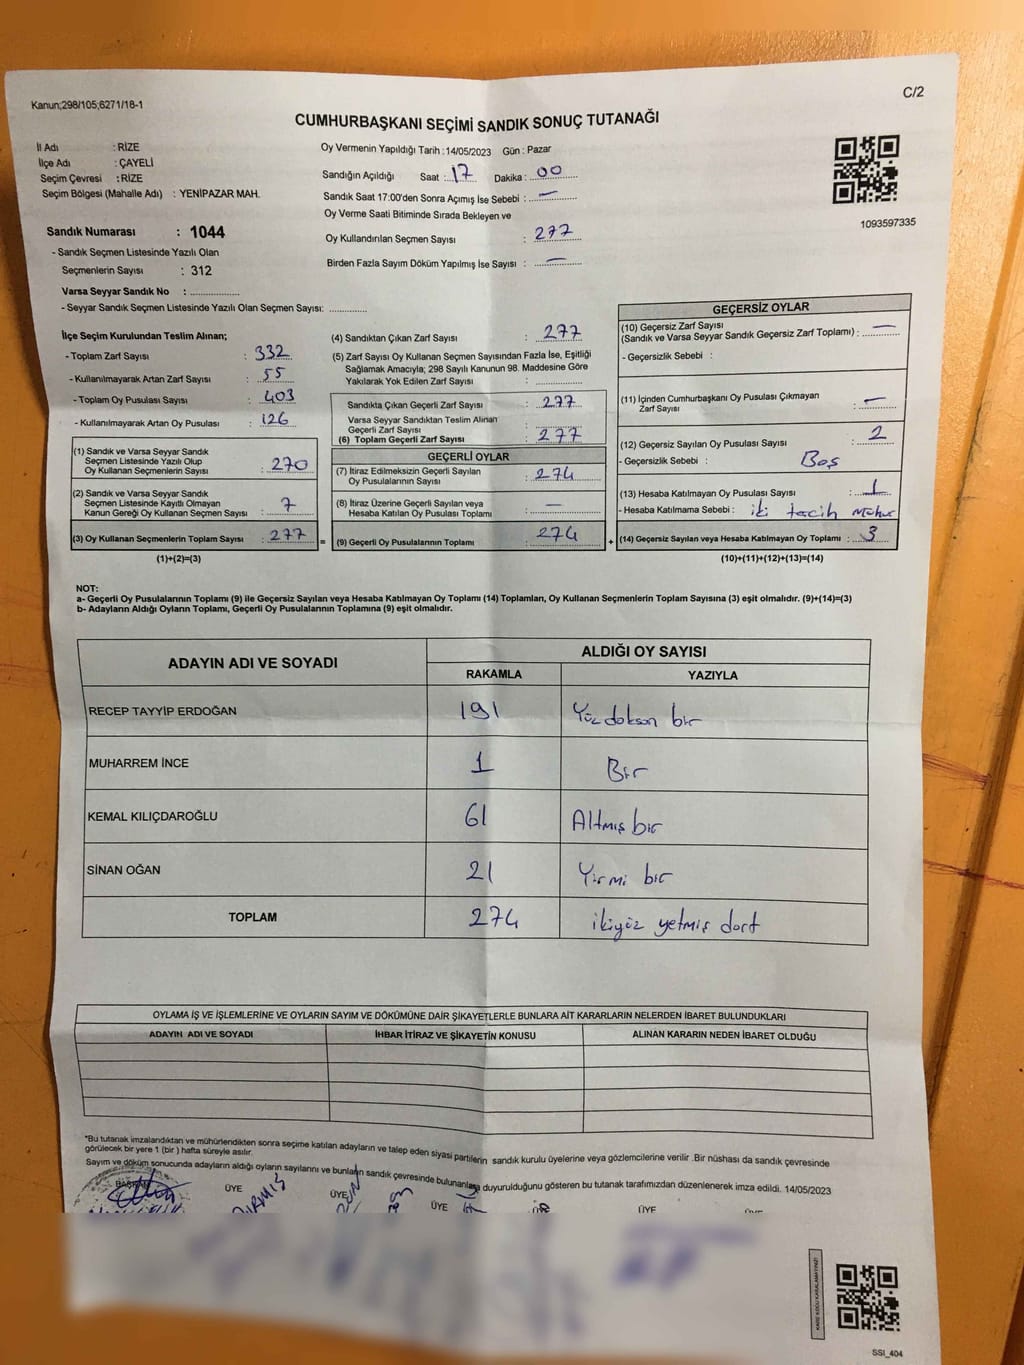 Kanun;298/105;6271/18-1
C/2
CUMHURBAŞKANI SEÇİMİ SANDIK SONUÇ TUTANAĞI
İl Adı : RİZE
İlçe Adı : ÇAYELİ
Seçim Çevresi : RİZE
Seçim Bölgesi (Mahalle Adı) : YENİPAZAR MAH.
Oy Vermenin Yapıldığı Tarih :14/05/2023 Gün : Pazar
Sandığın Açıldığı Saat : 17 Dakika : 00
Sandık Saat 17:00'den Sonra Açımış İse Sebebi : —
Oy Verme Saati Bitiminde Sırada Bekleyen ve
Oy Kullandırılan Seçmen Sayısı : 277
Birden Fazla Sayım Döküm Yapılmış İse Sayısı : —
1093597335
Sandık Numarası : 1044
- Sandık Seçmen Listesinde Yazılı Olan
Seçmenlerin Sayısı : 312
Varsa Seyyar Sandık No : ..................
- Seyyar Sandık Seçmen Listesinde Yazılı Olan Seçmen Sayısı: ..............
İlçe Seçim Kurulundan Teslim Alınan;
- Toplam Zarf Sayısı : 332
- Kullanılmayarak Artan Zarf Sayısı : 55
- Toplam Oy Pusulası Sayısı : 403
- Kullanılmayarak Artan Oy Pusulası : 126
(1) Sandık ve Varsa Seyyar Sandık
Seçmen Listesinde Yazılı Olup
Oy Kullanan Seçmenlerin Sayısı : 270
(2) Sandık ve Varsa Seyyar Sandık
Seçmen Listesinde Kayıtlı Olmayan
Kanun Gereği Oy Kullanan Seçmen Sayısı : 7
(3) Oy Kullanan Seçmenlerin Toplam Sayısı : 277 =
(1)+(2)=(3)
(4) Sandıktan Çıkan Zarf Sayısı : 277
(5) Zarf Sayısı Oy Kullanan Seçmen Sayısından Fazla İse, Eşitliği
Sağlamak Amacıyla; 298 Sayılı Kanunun 98. Maddesine Göre
Yakılarak Yok Edilen Zarf Sayısı : ..............
Sandıkta Çıkan Geçerli Zarf Sayısı : 277
Varsa Seyyar Sandıktan Teslim Alınan
Geçerli Zarf Sayısı :
(6) Toplam Geçerli Zarf Sayısı : 277
GEÇERLİ OYLAR
(7) İtiraz Edilmeksizin Geçerli Sayılan
Oy Pusulalarının Sayısı : 274
(8) İtiraz Üzerine Geçerli Sayılan veya
Hesaba Katılan Oy Pusulası Toplamı : —
(9) Geçerli Oy Pusulalarının Toplamı : 274 +
GEÇERSİZ OYLAR
(10) Geçersiz Zarf Sayısı
(Sandık ve Varsa Seyyar Sandık Geçersiz Zarf Toplamı) : —
- Geçersizlik Sebebi :
(11) İçinden Cumhurbaşkanı Oy Pusulası Çıkmayan
Zarf Sayısı : —
(12) Geçersiz Sayılan Oy Pusulası Sayısı : 2
- Geçersizlik Sebebi : Boş
(13) Hesaba Katılmayan Oy Pusulası Sayısı : 1
- Hesaba Katılmama Sebebi : iki tercih mühür
(14) Geçersiz Sayılan veya Hesaba Katılmayan Oy Toplamı : 3
(10)+(11)+(12)+(13)=(14)
NOT:
a- Geçerli Oy Pusulalarının Toplamı (9) ile Geçersiz Sayılan veya Hesaba Katılmayan Oy Toplamı (14) Toplamları, Oy Kullanan Seçmenlerin Toplam Sayısına (3) eşit olmalıdır. (9)+(14)=(3)
b- Adayların Aldığı Oyların Toplamı, Geçerli Oy Pusulalarının Toplamına (9) eşit olmalıdır.
ADAYIN ADI VE SOYADI ALDIĞI OY SAYISI
RAKAMLA YAZIYLA
RECEP TAYYİP ERDOĞAN 191 Yüz doksan bir
MUHARREM İNCE 1 Bir
KEMAL KILIÇDAROĞLU 61 Altmış bir
SİNAN OĞAN 21 Yirmi bir
TOPLAM 274 ikiyüz yetmiş dört
OYLAMA İŞ VE İŞLEMLERİNE VE OYLARIN SAYIM VE DÖKÜMÜNE DAİR ŞİKAYETLERLE BUNLARA AİT KARARLARIN NELERDEN İBARET BULUNDUKLARI
ADAYIN ADI VE SOYADI İHBAR İTİRAZ VE ŞİKAYETİN KONUSU ALINAN KARARIN NEDEN İBARET OLDUĞU
*Bu tutanak imzalandıktan ve mühürlendikten sonra seçime katılan adayların ve talep eden siyasi partilerin sandık kurulu üyelerine veya gözlemcilerine verilir .Bir nüshası da sandık çevresinde
görülecek bir yere 1 (bir ) hafta süreyle asılır.
Sayım ve döküm sonucunda adayların aldığı oyların sayılarını ve bunların sandık çevresinde bulunanlara duyurulduğunu gösteren bu tutanak tarafımızdan düzenlenerek imza edildi. 14/05/2023
BAŞKAN ÜYE ÜYE ÜYE ÜYE
SSI_404